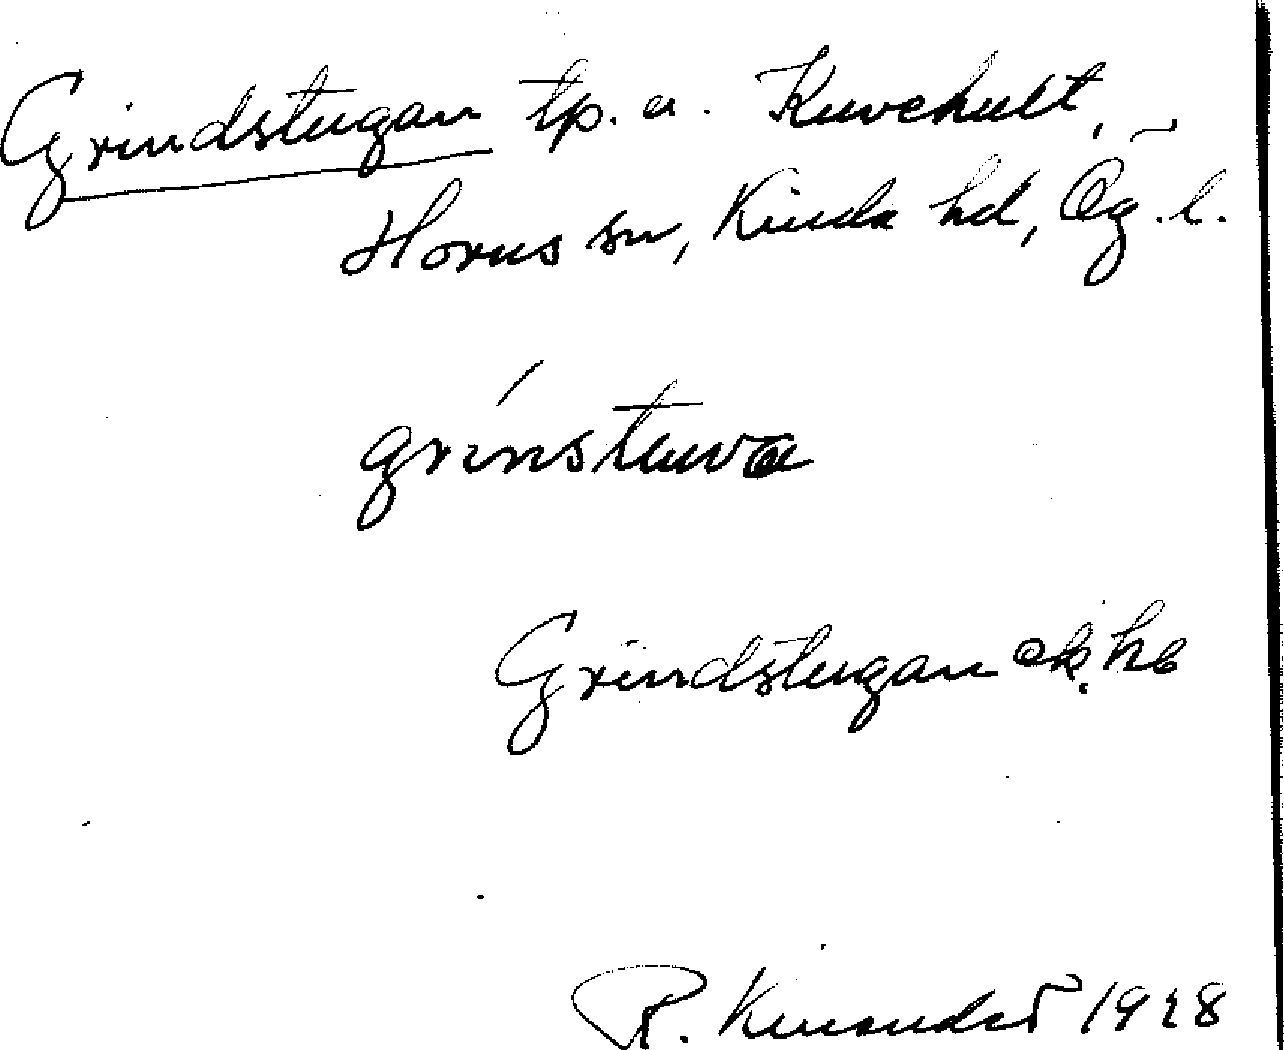 Grindstugan tp. u. Kuvehult,
Horns sn, Kinda hd, Ög.l.
grinstuva
Grindstugan ek. kb
R. Kinander 1928